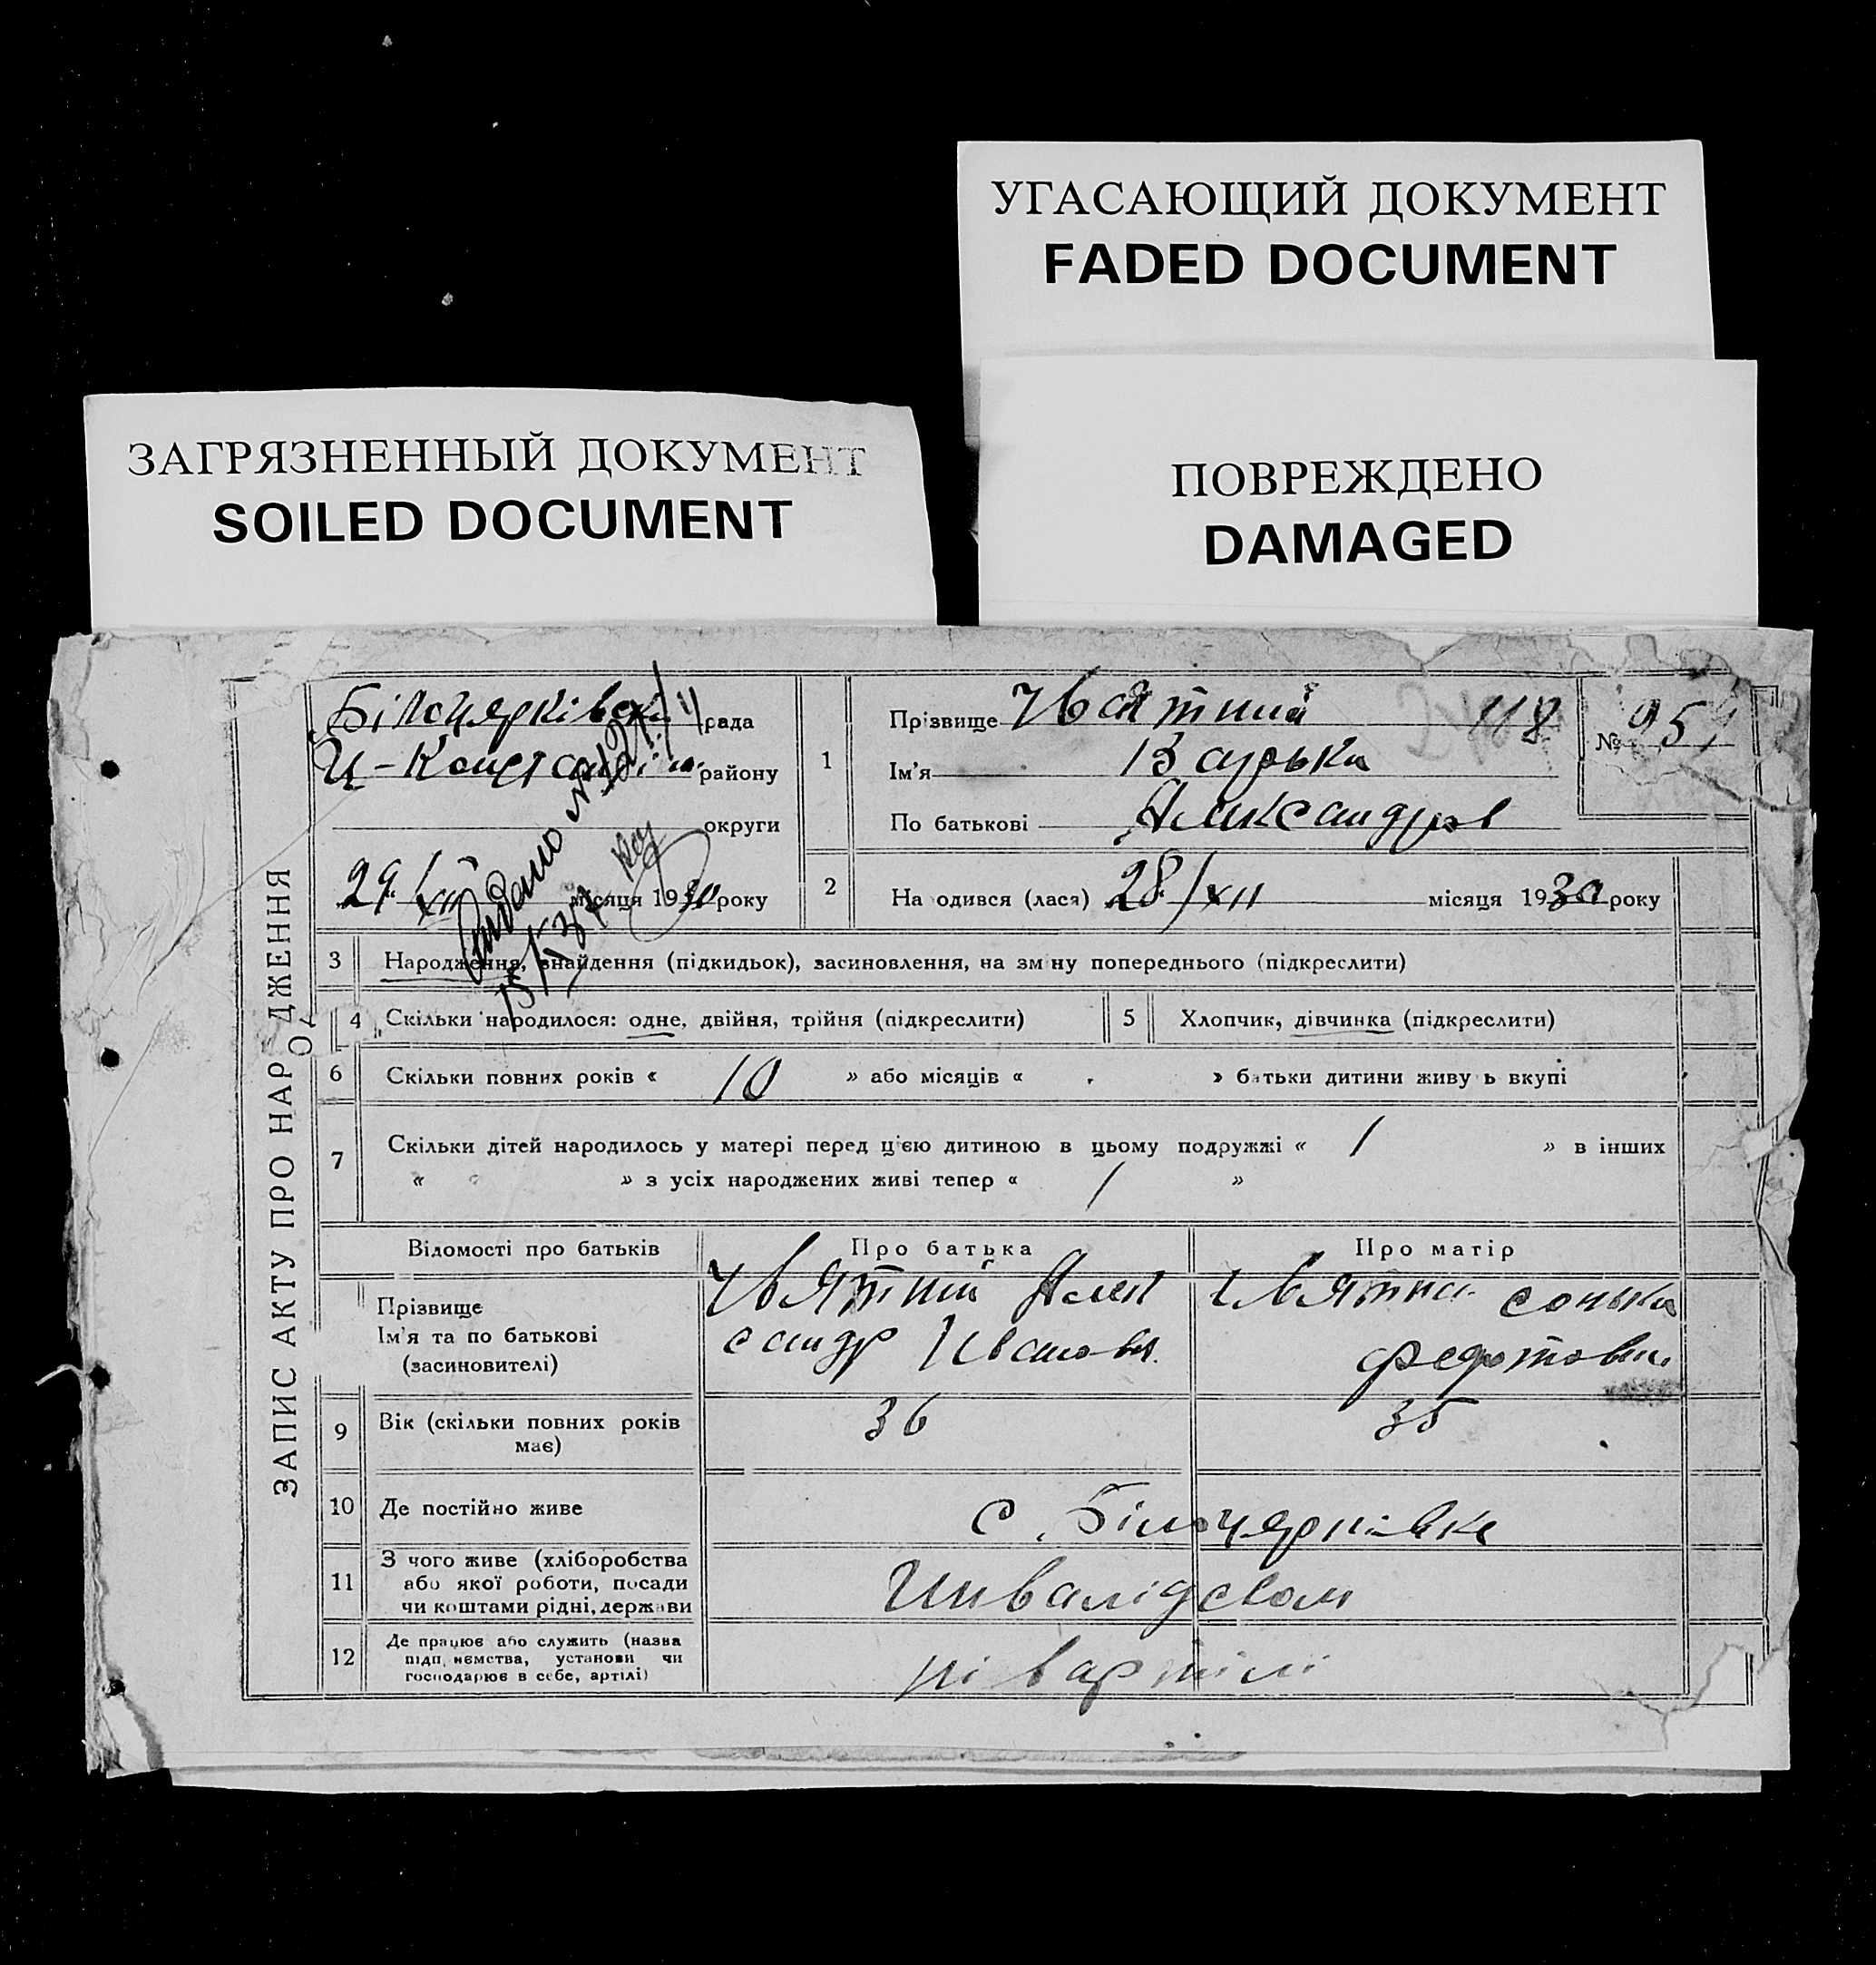 УГАСАЮЩИЙ ДОКУМЕНТ
FADED DOCUMENT
ЗАГРЯЗНЕННЫЙ ДОКУМЕНТ
SOILED DOCUMENT
ПОВРЕЖДЕНО
DAMAGED
ЗАПИС АКТУ ПРО НАР ДЖЕННЯ
О
рада
району
округи
29/XII місяця 1930 року
Видано №
1
Прізвище 118
Ім'я
По батькові Александров
№ 95
2
На одився (лася) 28/XII місяця 1930 року
3 Народження, знайдення (підкидьок), засиновлення, на зм ну попереднього (підкреслити)
4 Скільки народилося: одне, двійня, трійня (підкреслити)
5 Хлопчик, дівчинка (підкреслити)
6 Скільки повних років « 10 » або місяців « » батьки дитини живу ь вкупі
7 Скільки дітей народилось у матері перед ц'єю дитиною в цьому подружжі « 1 » в інших
« » з усіх народжених живі тепер « 1 »
Відомості про батьків
Про батька
Про матір
Прізвище
Ім'я та по батькові
(засиновителі)
Алек
сандр Иванов
сонька
федотовна
9 Вік (скільки повних років
має)
36
35
10 Де постійно живе
с. Білоцерківка
11 З чого живе (хліборобства
або якої роботи, посади
чи коштами рідні, держави
12 Де працює або служить (назва
підп ємства, установи чи
господарює в себе, артілі)